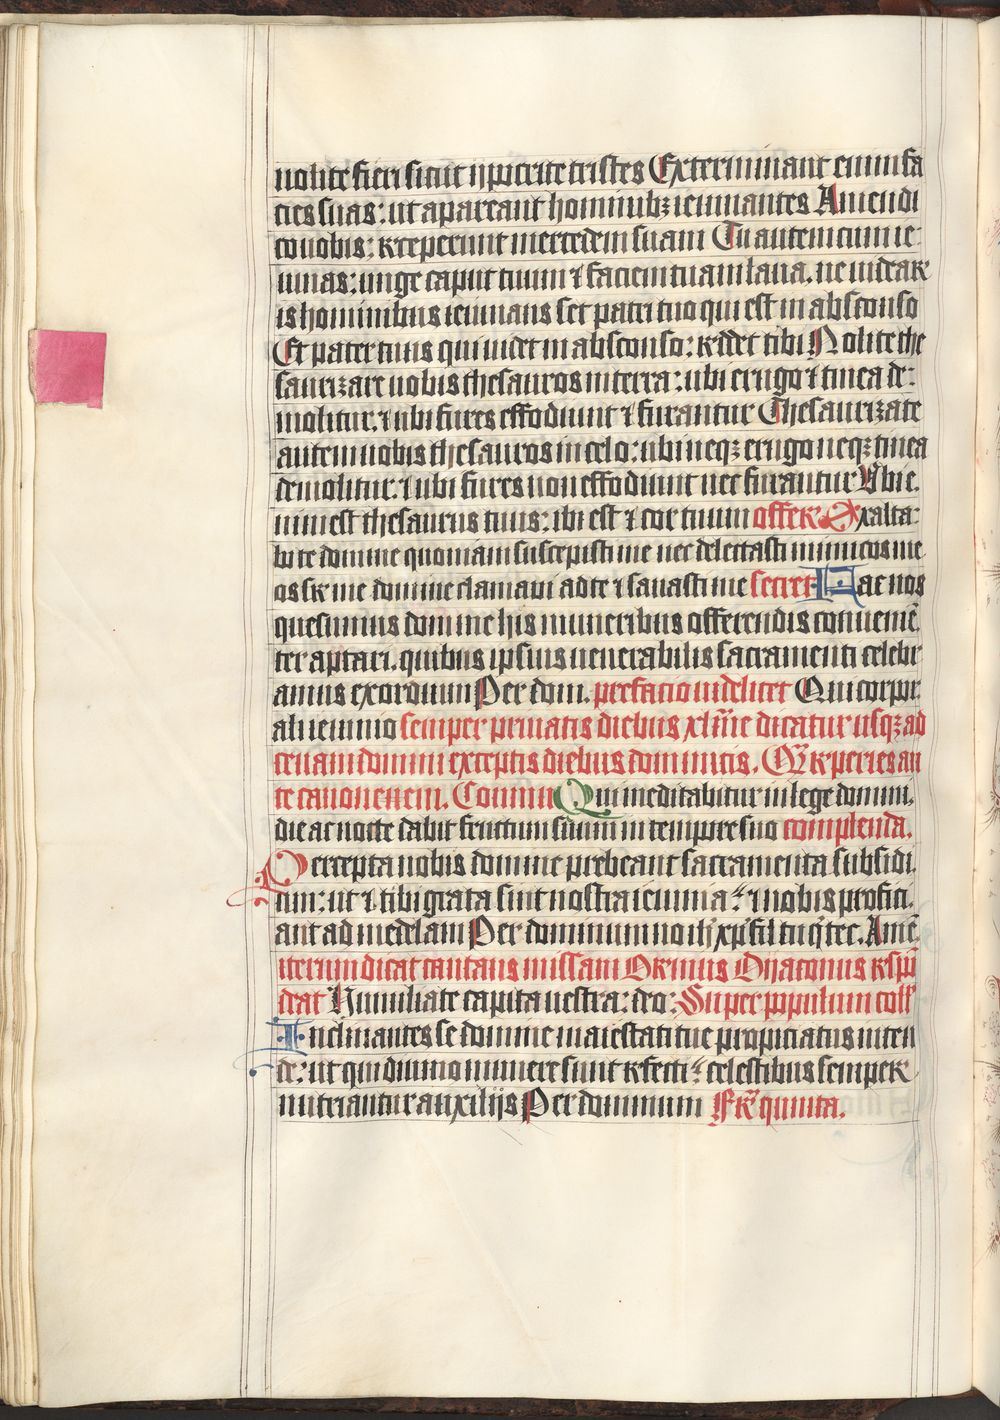 nolite fieri sicut ypicrite tristes Exterminant enim fa
cies suas: ut apareant hominibꝫ ieiunantes Amen di
co uobis: receperunt mercedem suam Tu autem cum ie
iunas: unge caput tuum ⁊ faciem tuam laua. ne uidear
is hominibus ieiunans set patri tuo qui est in absconso
Et pater tuus qui uidet in absconso: reddet tibi Nolite the
saurizare uobis thesauros in terra: ubi erugo ⁊ tinea de:
molitur. ⁊ ubi fures effodiunt ⁊ furantur Thesaurizate
autem uobis thesauros in celo: ubi neqꝫ erugo neqꝫ tinea
demolitur. ⁊ ubi fures non effodiunt nec furantur Vbi e.
nim est thesaurus tuus: ibi est ⁊ cor tuum offer Exalta:
bo te domine quoniam suscepisti me nec delectasti inimicos me
os sr me domine clamaui ad te ⁊ sanasti me secret Fac nos
quesumus domine his muneribus offerendis conuenie͞
ter aptari. quibus ipsius uenerabilis sacramenti celebr
amus exordium Per dom. prefacio uidelicet Qui corpor
ali ieiunio semper priuatis diebus xlme dicatur usqꝫ ad
cenam domini exceptis diebus dominicis. Qr reperies an
te canonem. Commu Qui meditabitur in lege domini.
die ac nocte dabit fructum suum in tempore suo complenda.
Percepta nobis domine prebeant sacramenta subsidi.
um: ut ⁊ tibi grata sint nostra ieiunia: ⁊ nobis profici.
ant ad medelam Per dominum nr̄ ih̄ xp̄ fil tuū qͥ tec. Ame͞
iterum dicat cantans missam Oremus Dyaconus respo͞
deat Humiliate capita uestra: deo: Super populum coll
Inclinantes se domine maiestati tue propiciatus inten
de: ut qui diuino munere sunt refecti: celestibus semper
nutriantur auxilijs Per dominum Fr quinta.